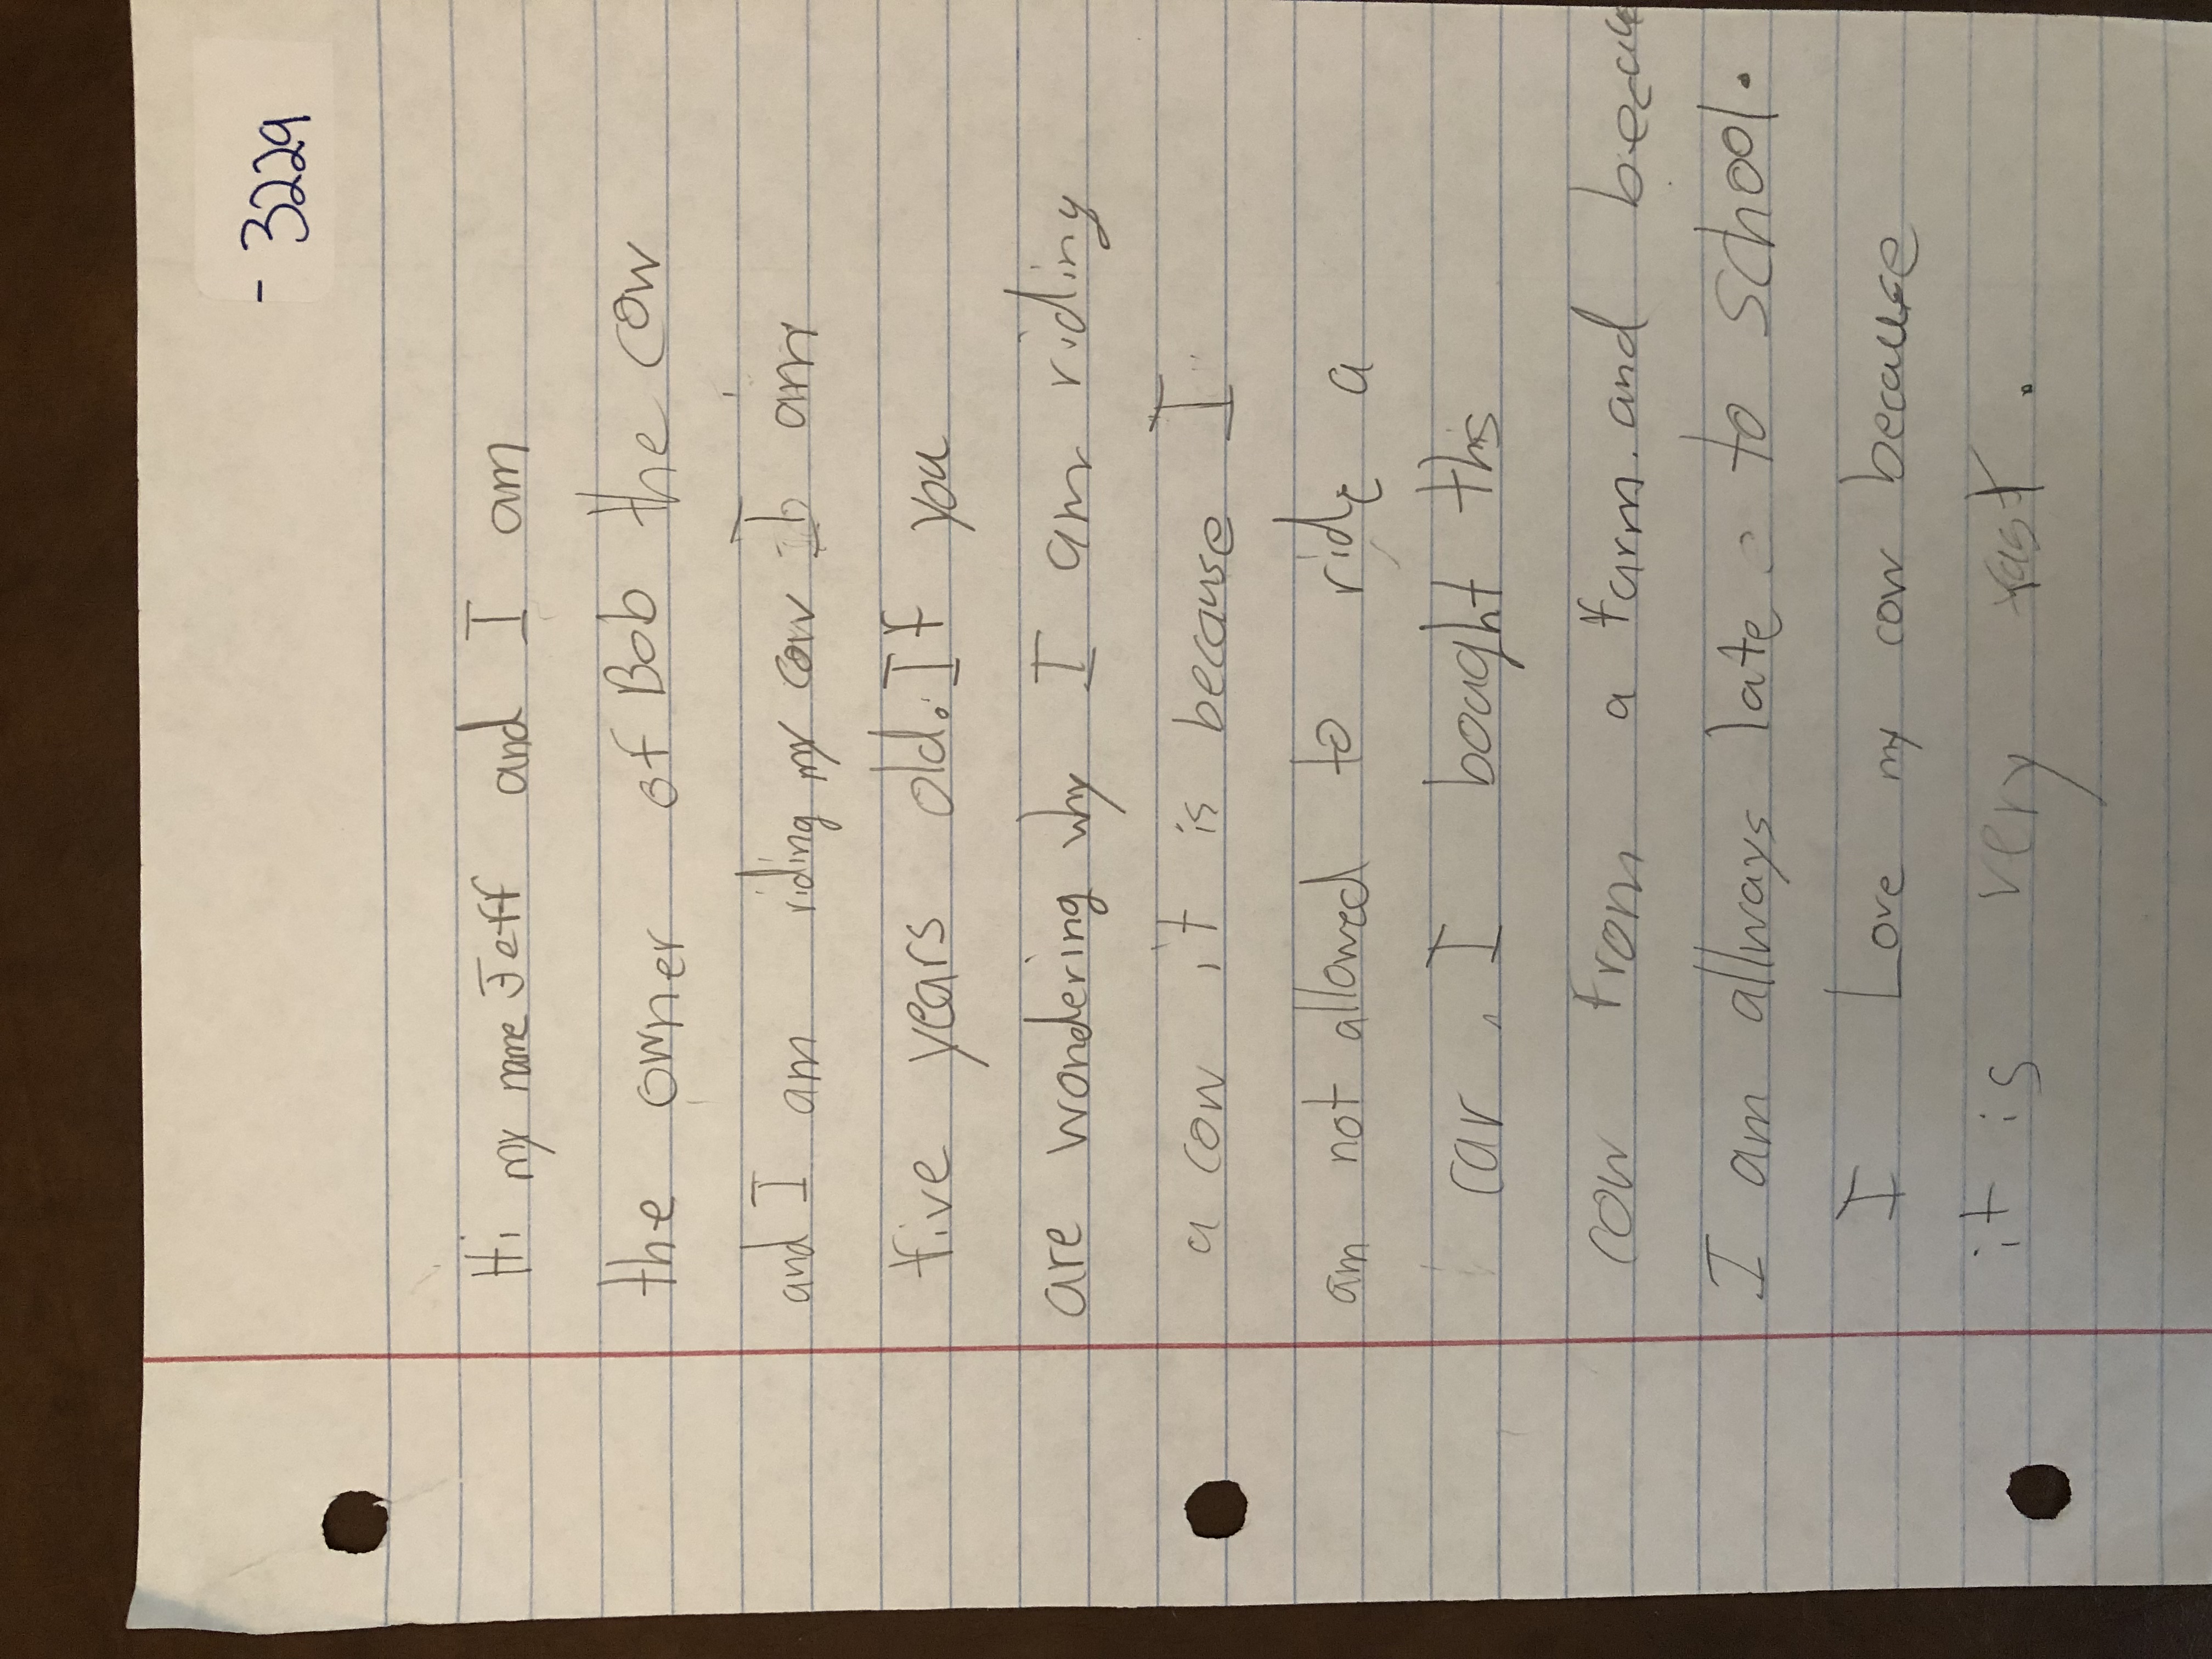 - 3229
Hi my name Jeff and I am
the owner of Bob the cow
and I am riding my cow I am
five years old. If you
are wondering why I am riding
a cow it is because I
am not allowed to ride a
car. I bought this
cow from a farm. and becau
I am allways late to school.
I Love my cow because
it is very fast.